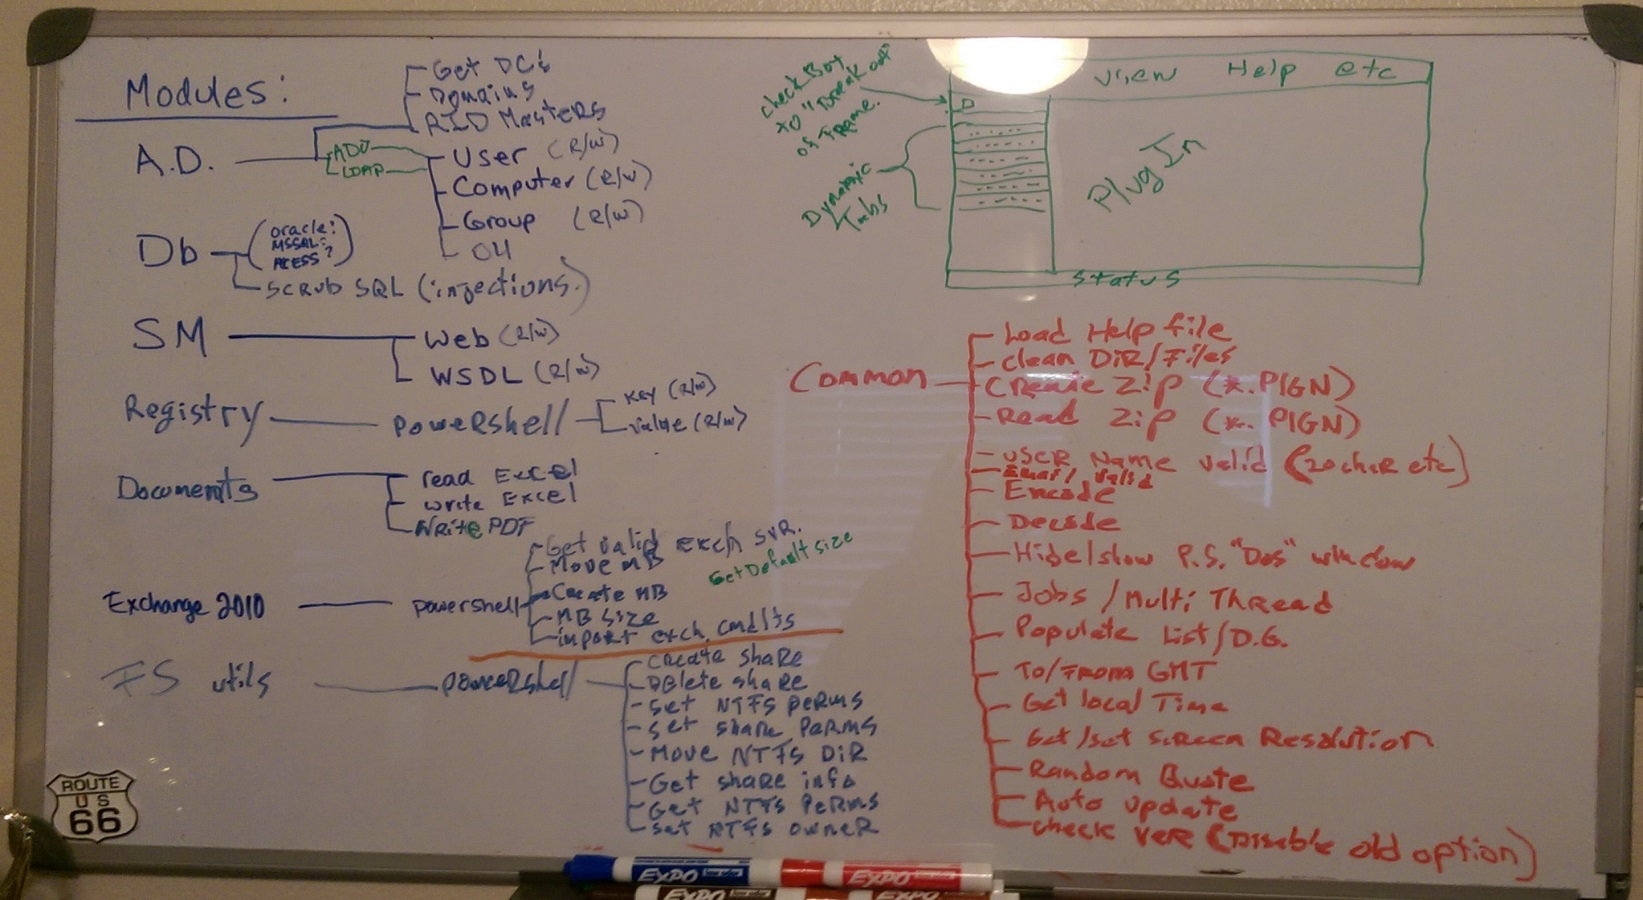 Modules:
A.D.
Get DC's
Domains
RID Masters
ADO
LDAP
User (R/W)
Computer (R/W)
Group (R/W)
OU
Db
(oracle:
MSSQL:
ACESS?)
SCRUB SQL (injections.)
SM
Web (R/W)
WSDL (R/W)
Registry
PoweRshell
Key (R/W)
Value (R/W)
Documents
read Excel
write Excel
Write PDF
Exchange 2010
powershell
Get valid exch SVR.
Move MB
Create MB
MB Size
import exch. cmdlts
Get Default size
FS utils
poweRshell
Create share
Delete share
Set NTFS perms
Set share Perms
Move NTFS DiR
Get share info
Get NTFS Perms
Set NTFS owner
check Box
to "Break out"
of Frame.
Dynamic
Tabs
View Help etc
Plug In
Status
Common
Load Help file
clean DiR/Files
Create Zip (*.PIGN)
Read Zip (*.PIGN)
USER Name valid (20 char etc)
Email Valid
Encode
Decode
Hide/show P.S. "Dos" window
Jobs / Multi Thread
Populate List/D.G.
To/From GMT
Get local Time
Get/set screen Resolution
Random Quote
Auto update
check VeR (Disable old option)
ROUTE
US
66
EXPO
EXPO
EXPO
EXPO